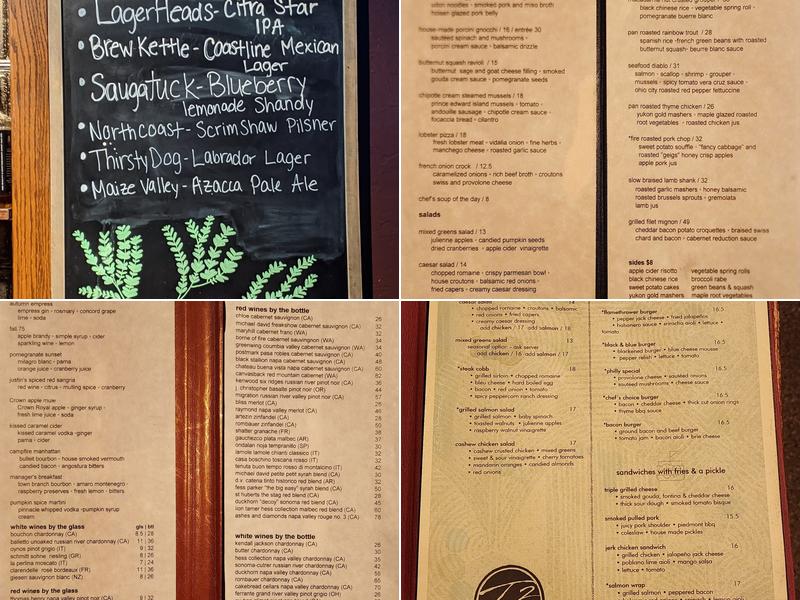 LagerHeads- Citra Star
IPA
• Brew Kettle - Coastline Mexican
Lager
• Saugatuck- Blueberry
lemonade Shandy
• Northcoast- Scrimshaw Pilsner
• Thirsty Dog- Labrador Lager
• Maize Valley- Azacca Pale Ale
udon noodles - smoked pork and miso broth
hoisen glazed pork belly
house-made porcini gnocchi / 16 / entrée 30
sauteed spinach and mushrooms -
porcini cream sauce - balsamic drizzle
butternut squash ravioli / 15
butternut sage and goat cheese filling - smoked
gouda cream sauce - pomegranate seeds
chipotle cream steamed mussels / 18
prince edward island mussels - tomato -
andouille sausage - chipotle cream sauce -
focaccia bread - cilantro
lobster pizza / 18
fresh lobster meat - vidalia onion - fine herbs -
manchego cheese - roasted garlic sauce
french onion crock / 12.5
caramelized onions - rich beef broth - croutons
swiss and provolone cheese
chef's soup of the day / 8
salads
mixed greens salad / 13
julienne apples - candied pumpkin seeds
dried cranberries - apple cider vinaigrette
caesar salad / 14
chopped romaine - crispy parmesan bowl -
house croutons - balsamic red onions -
fried capers - creamy caesar dressing
black chinese rice - vegetable spring roll -
pomegranate buerre blanc
pan roasted rainbow trout / 28
spanish rice - french green beans with roasted
butternut squash - beurre blanc sauce
seafood diablo / 31
salmon - scallop - shrimp - grouper -
mussels - spicy tomato vera cruz sauce -
ohio city roasted red pepper fettuccine
pan roasted thyme chicken / 26
yukon gold mashers - maple glazed roasted
root vegetables - roasted chicken jus
*fire roasted pork chop / 32
sweet potato souffle - "fancy cabbage" and
roasted "geigs" honey crisp apples
apple pork jus
slow braised lamb shank / 32
roasted garlic mashers - honey balsamic
roasted brussels sprouts - gremolata
lamb jus
grilled filet mignon / 49
cheddar bacon potato croquettes - braised swiss
chard and bacon - cabernet reduction sauce
sides $8
apple cider risotto vegetable spring rolls
black chinese rice broccoli rabe
sweet potato cakes green beans & squash
yukon gold mashers maple root vegetables
autumn empress
empress gin - rosemary - concord grape
lime - soda
fall 75
apple brandy - simple syrup - cider
sparkling wine - lemon
pomegranate sunset
milagro blanc - pama
orange juice - cranberry juice
justin's spiced red sangria
red wine - citrus - mulling spice - cranberry
Crown apple mule
Crown Royal apple - ginger syrup -
fresh lime juice - soda
kissed caramel cider
kissed caramel vodka - ginger
pama - cider
campfire manhattan
bulleit bourbon - house smoked vermouth
candied bacon - angostura bitters
manager's breakfast
town branch bourbon - amaro montenegro -
raspberry preserves - fresh lemon - bitters
pumpkin spice martini
pinnacle whipped vodka - pumpkin syrup
cream
white wines by the glass gls | btl
bouchon chardonnay (CA) 8.5 | 28
balletto unoaked russian river chardonnay (CA) 11 | 36
cynos pinot grigio (IT) 9 | 32
schmitt sohne riesling (GR) 8 | 26
la perlina moscato (IT) 7 | 24
clarendelle rosé bordeaux (FR) 11 | 36
giesen sauvignon blanc (NZ) 8 | 26
red wines by the glass
thomas henry napa valley pinot noir (CA) 9 | 32
red wines by the bottle
chloe cabernet sauvignon (CA) 26
michael david freakshow cabernet sauvignon (CA) 32
maryhill cabernet franc (WA) 32
borne of fire cabernet sauvignon (WA) 34
greenwing coumba valley cabernet sauvignon (WA) 34
postmark paso robles cabernet sauvignon (CA) 40
black stallion napa cabernet sauvignon (CA) 48
chateau buena vista napa cabernet sauvignon (CA) 60
canvasback red mountain cabernet (WA) 62
kenwood six ridges russian river pinot noir (CA) 36
j. christopher basalte pinot noir (OR) 44
migration russian river valley pinot noir (CA) 57
bliss merlot (CA) 26
raymond napa valley merlot (CA) 45
artezin zinfandel (CA) 28
rombauer zinfandel (CA) 50
shatter granache (FR) 38
gauchezco plata malbec (AR) 37
ondalan noja tempranillo (SP) 30
lamole lamole chianti classico (IT) 32
casa boschino toscana rosso (IT) 32
tenuta buon tempo rosso di montalcino (IT) 42
michael david petite petit syrah blend (CA) 30
d.v. catena tinto historico red blend (AR) 32
fess parker "the big easy" syrah blend (CA) 50
st huberts the stag red blend (CA) 28
duckhorn "decoy" sonoma red blend (CA) 45
lion tamer hess collection malbec red blend (CA) 60
ashes and diamonds napa valley rouge no. 3 (CA) 78
white wines by the bottle
kendall jackson chardonnay (CA) 26
butter chardonnay (CA) 30
hess collection napa valley chardonnay (CA) 35
sonoma-cutrer russian river chardonnay (CA)
duckhorn napa valley chardonnay (CA)
rombauer chardonnay (CA) 65
cakebread cellars napa valley chardonnay (CA)
ferrante grand river valley pinot grigio (OH)
caesar salad 14
• chopped romaine • croutons • balsamic
• red onions • fried capers
• creamy caesar dressing
add chicken / 17 add salmon / 18
mixed greens salad 13
seasonal option - ask server
add chicken / 16 add salmon / 17
*steak cobb 18
• grilled sirloin • chopped romaine
• bleu cheese • hard boiled egg
• bacon • red onion • tomato
• spicy peppercorn ranch dressing
*grilled salmon salad 17
• grilled salmon • baby spinach
• toasted walnuts • julienne apples
• raspberry walnut vinaigrette
cashew chicken salad 17
• cashew crusted chicken • mixed greens
• sweet & sour vinaigrette • cherry tomatoes
• mandarin oranges • candied almonds
• red onions
*flamethrower burger 16.5
• pepper jack cheese • fried jalapeños
• habanero sauce • sriracha aioli • lettuce •
tomato
*black & blue burger 16.5
• blackened burger • blue cheese mousse
• pepper relish • lettuce • tomato
*philly special 16.5
• provolone cheese • sautéed onions
• sautéed mushrooms • cheese sauce
*chef's choice burger 16.5
• bacon • cheddar cheese • thick cut onion rings
• thyme bbq sauce
*bacon burger 16.5
• ground bacon and beef burger
• tomato jam • bacon aioli • brie cheese
sandwiches with fries & a pickle
triple grilled cheese 16
• smoked gouda, fontina & cheddar cheese
• thick sour dough • smoked tomato bisque
smoked pulled pork 15.5
• juicy pork shoulder • piedmont bbq
• coleslaw • house made pickles
jerk chicken sandwich 16
• grilled chicken • jalapeño jack cheese
• poblano lime aioli • mango salsa
• lettuce • tomato
*salmon wrap 17
• grilled salmon • peppered bacon